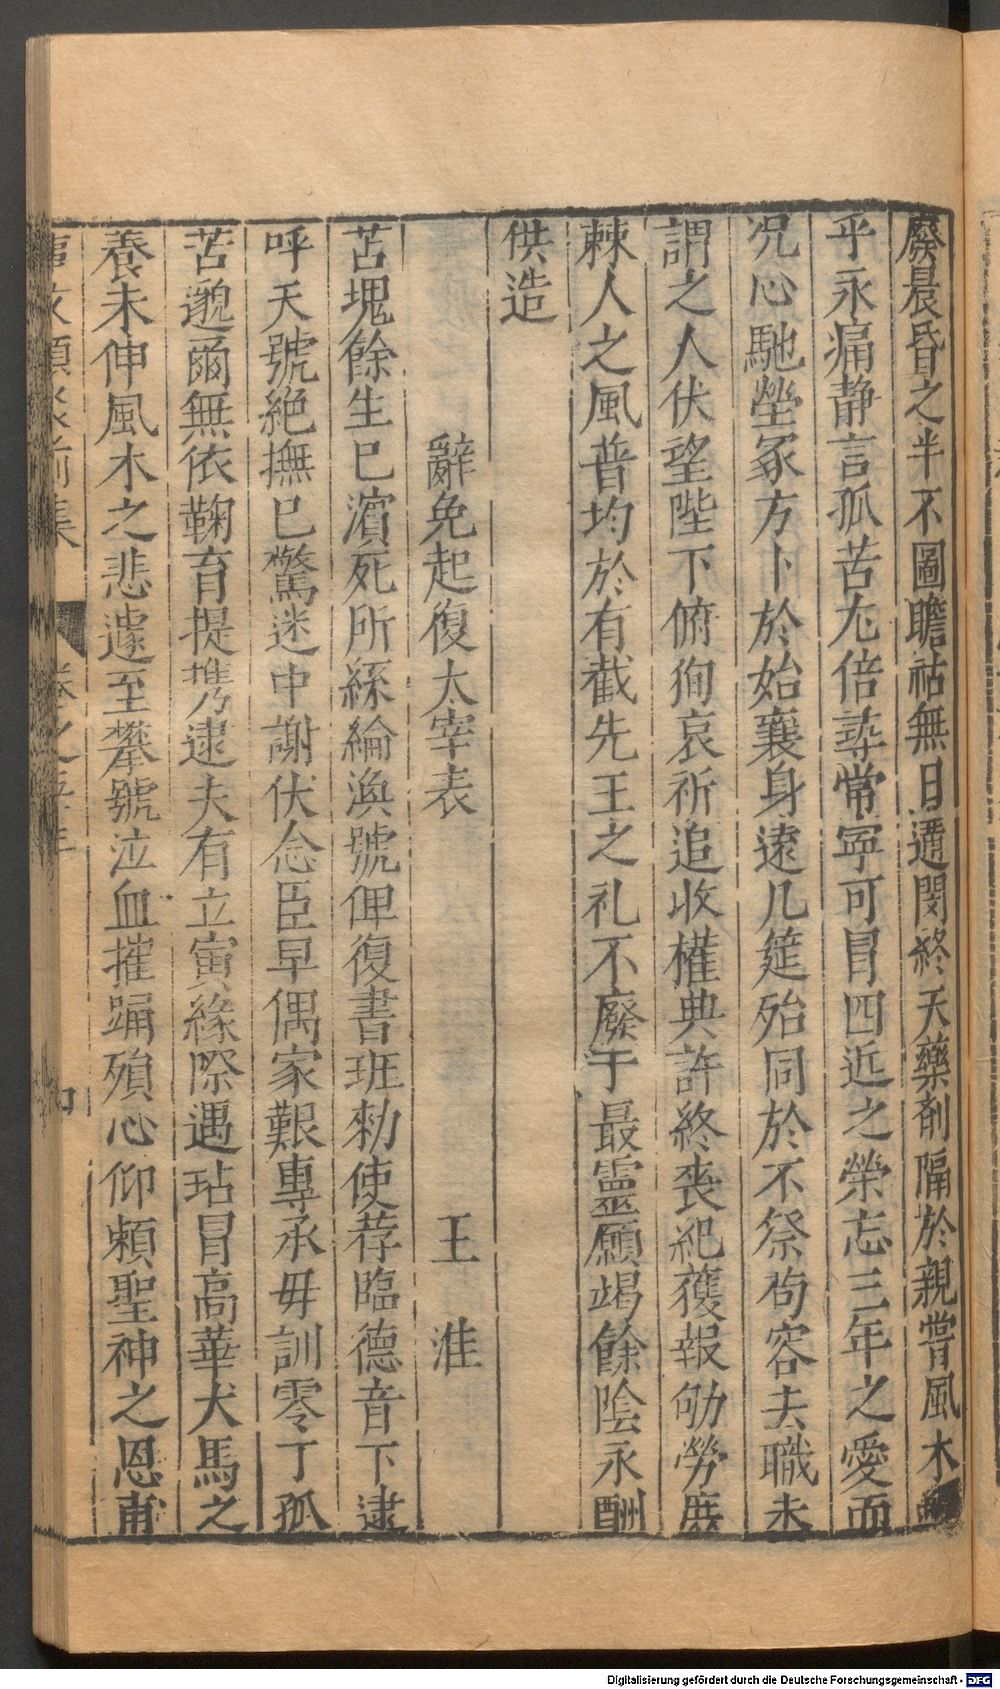 廢晨昏之半不圖瞻祜無日遭閔終天藥劑隔於親嘗風木
乎永痛静言孤苦尤倍尋常寜可冒四近之榮忘三年之愛而
况心馳塋冢方卜於始襄身逺几筵殆同於不祭茍容去職未
謂之人伏望陛下俯徇哀祈追收權典許終丧紀獲報劬勞庶
棘人之風普均於有截先王之礼不廢于最靈願竭餘陰永酬
供造
辭免起復太宰表 王 淮
苫塊餘生已濱死所絲綸渙號俾復書班勑使荐臨德音下逮
呼天號絶撫已驚迷中謝伏念臣早偶家艱專承毋訓零丁孤
苦邈爾無依鞠育提携逮夫有立寅緣際遇玷冒高華犬馬之
養未伸風木之悲遽至攀號泣血摧踊殞心仰頼聖神之恩甫
事文類聚前集 卷之五十